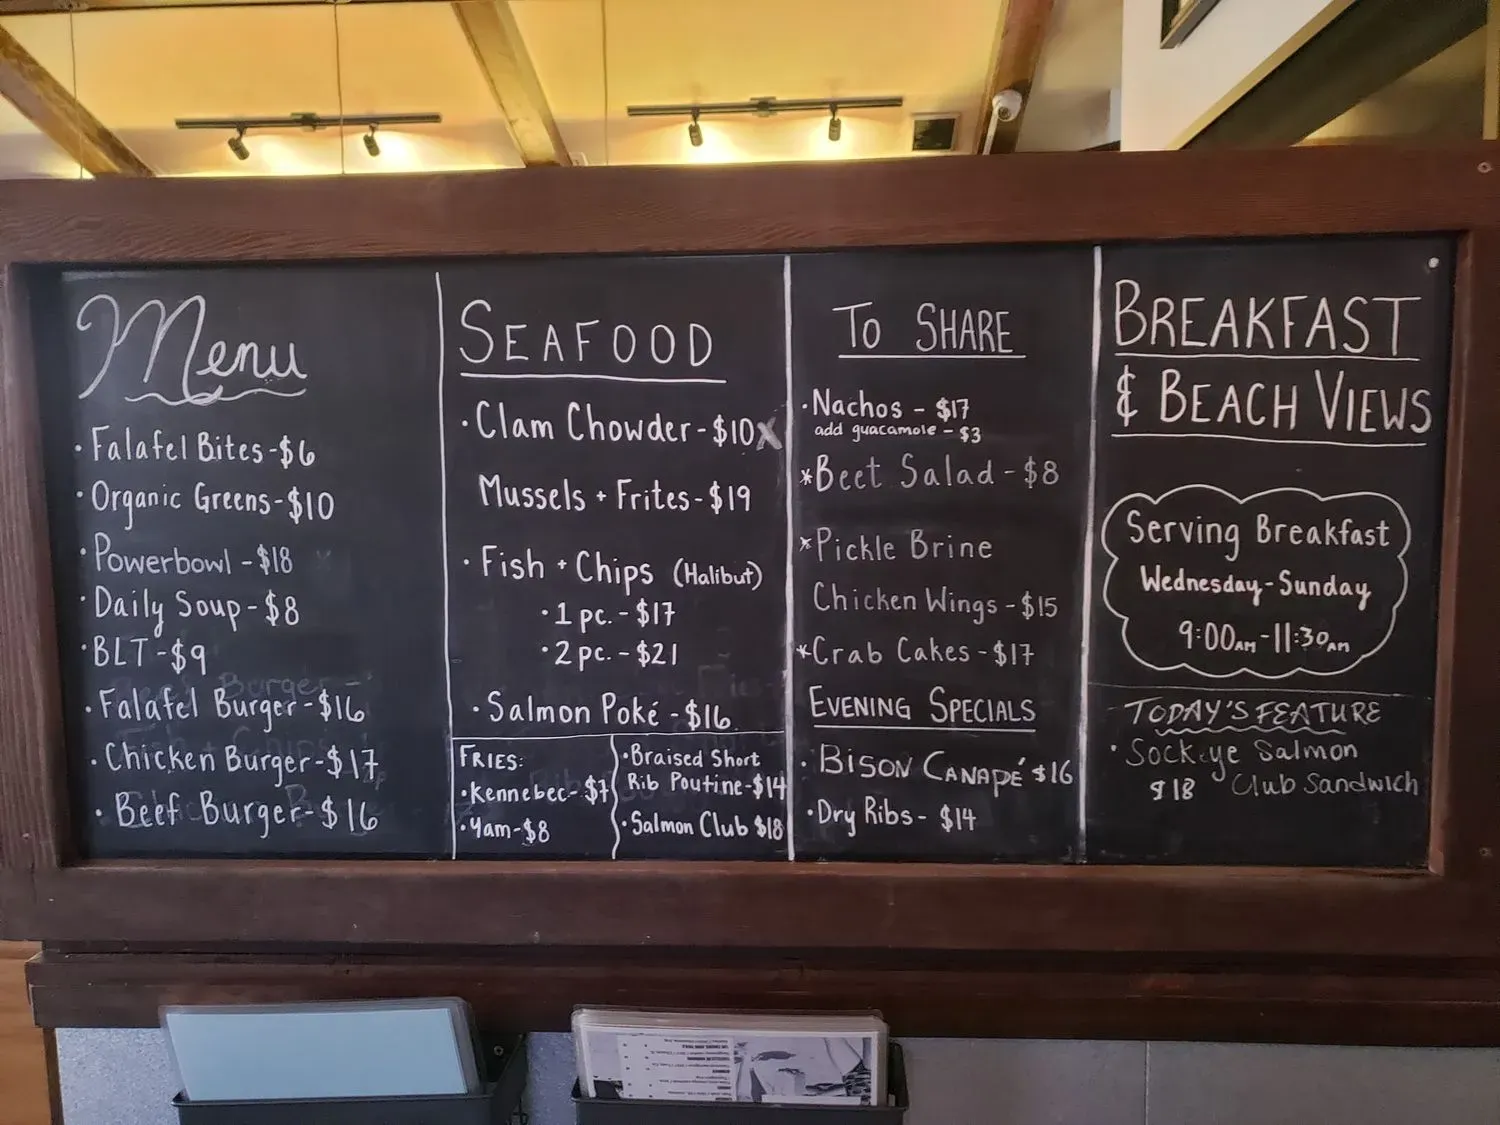 Menu
· Falafel Bites - $6
· Organic Greens - $10
· Powerbowl - $18
· Daily Soup - $8
· BLT - $9
· Falafel Burger - $16
· Chicken Burger - $17
· Beef Burger - $16
SEAFOOD
· Clam Chowder - $10 x
Mussels + Frites - $19
· Fish + Chips (Halibut)
· 1 pc. - $17
· 2 pc. - $21
· Salmon Poké - $16
FRIES:
· Kennebec - $7
· Yam - $8
· Braised Short
Rib Poutine - $14
· Salmon Club $18
To SHARE
· Nachos - $17
add guacamole - $3
* Beet Salad - $8
* Pickle Brine
Chicken Wings - $15
* Crab Cakes - $17
EVENING SPECIALS
· BISON CANAPÉ $16
· Dry Ribs - $14
BREAKFAST
& BEACH VIEWS
Serving Breakfast
Wednesday - Sunday
9:00AM - 11:30AM
TODAY'S FEATURE
· Sockeye Salmon
$18 Club Sandwich